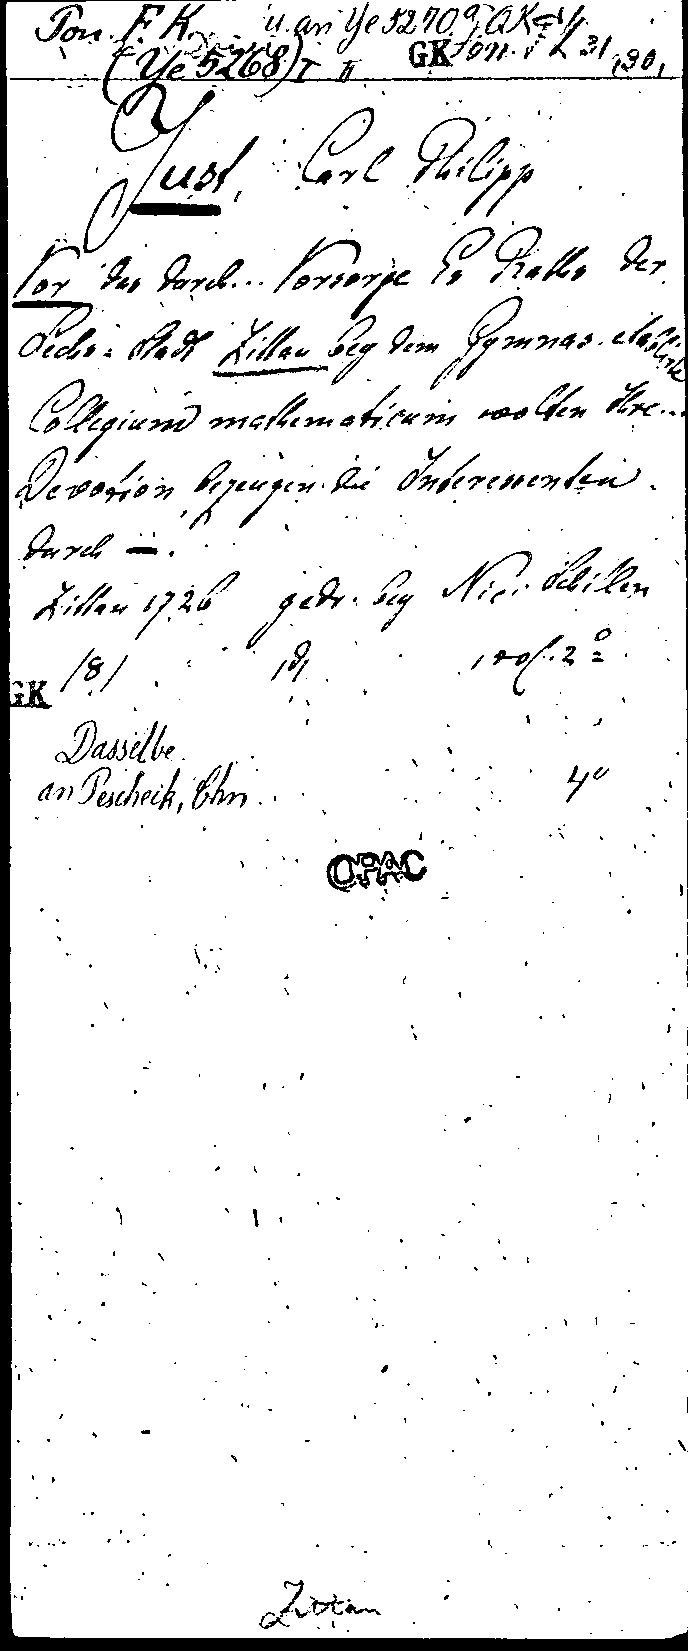 Pon. F. K. u. an Ye 5270 a, QK
(Ye 5268) I II GK Pon. 31, 30,
Just, Carl Philipp
Vor das durch... Vorsorge Es Raths der
Sechs-Stadt Zittau bey dem Gymnas. etablirte
Collegium mathematicum wolten Ihre...
Devotion bezeugen die Interessenten
durch —.
Zittau 1726 gedr. bey Nic. Schillen
/8/ 2°
GK
Dasselbe
an Pescheck, Chn 4°
OPAC
Zittau